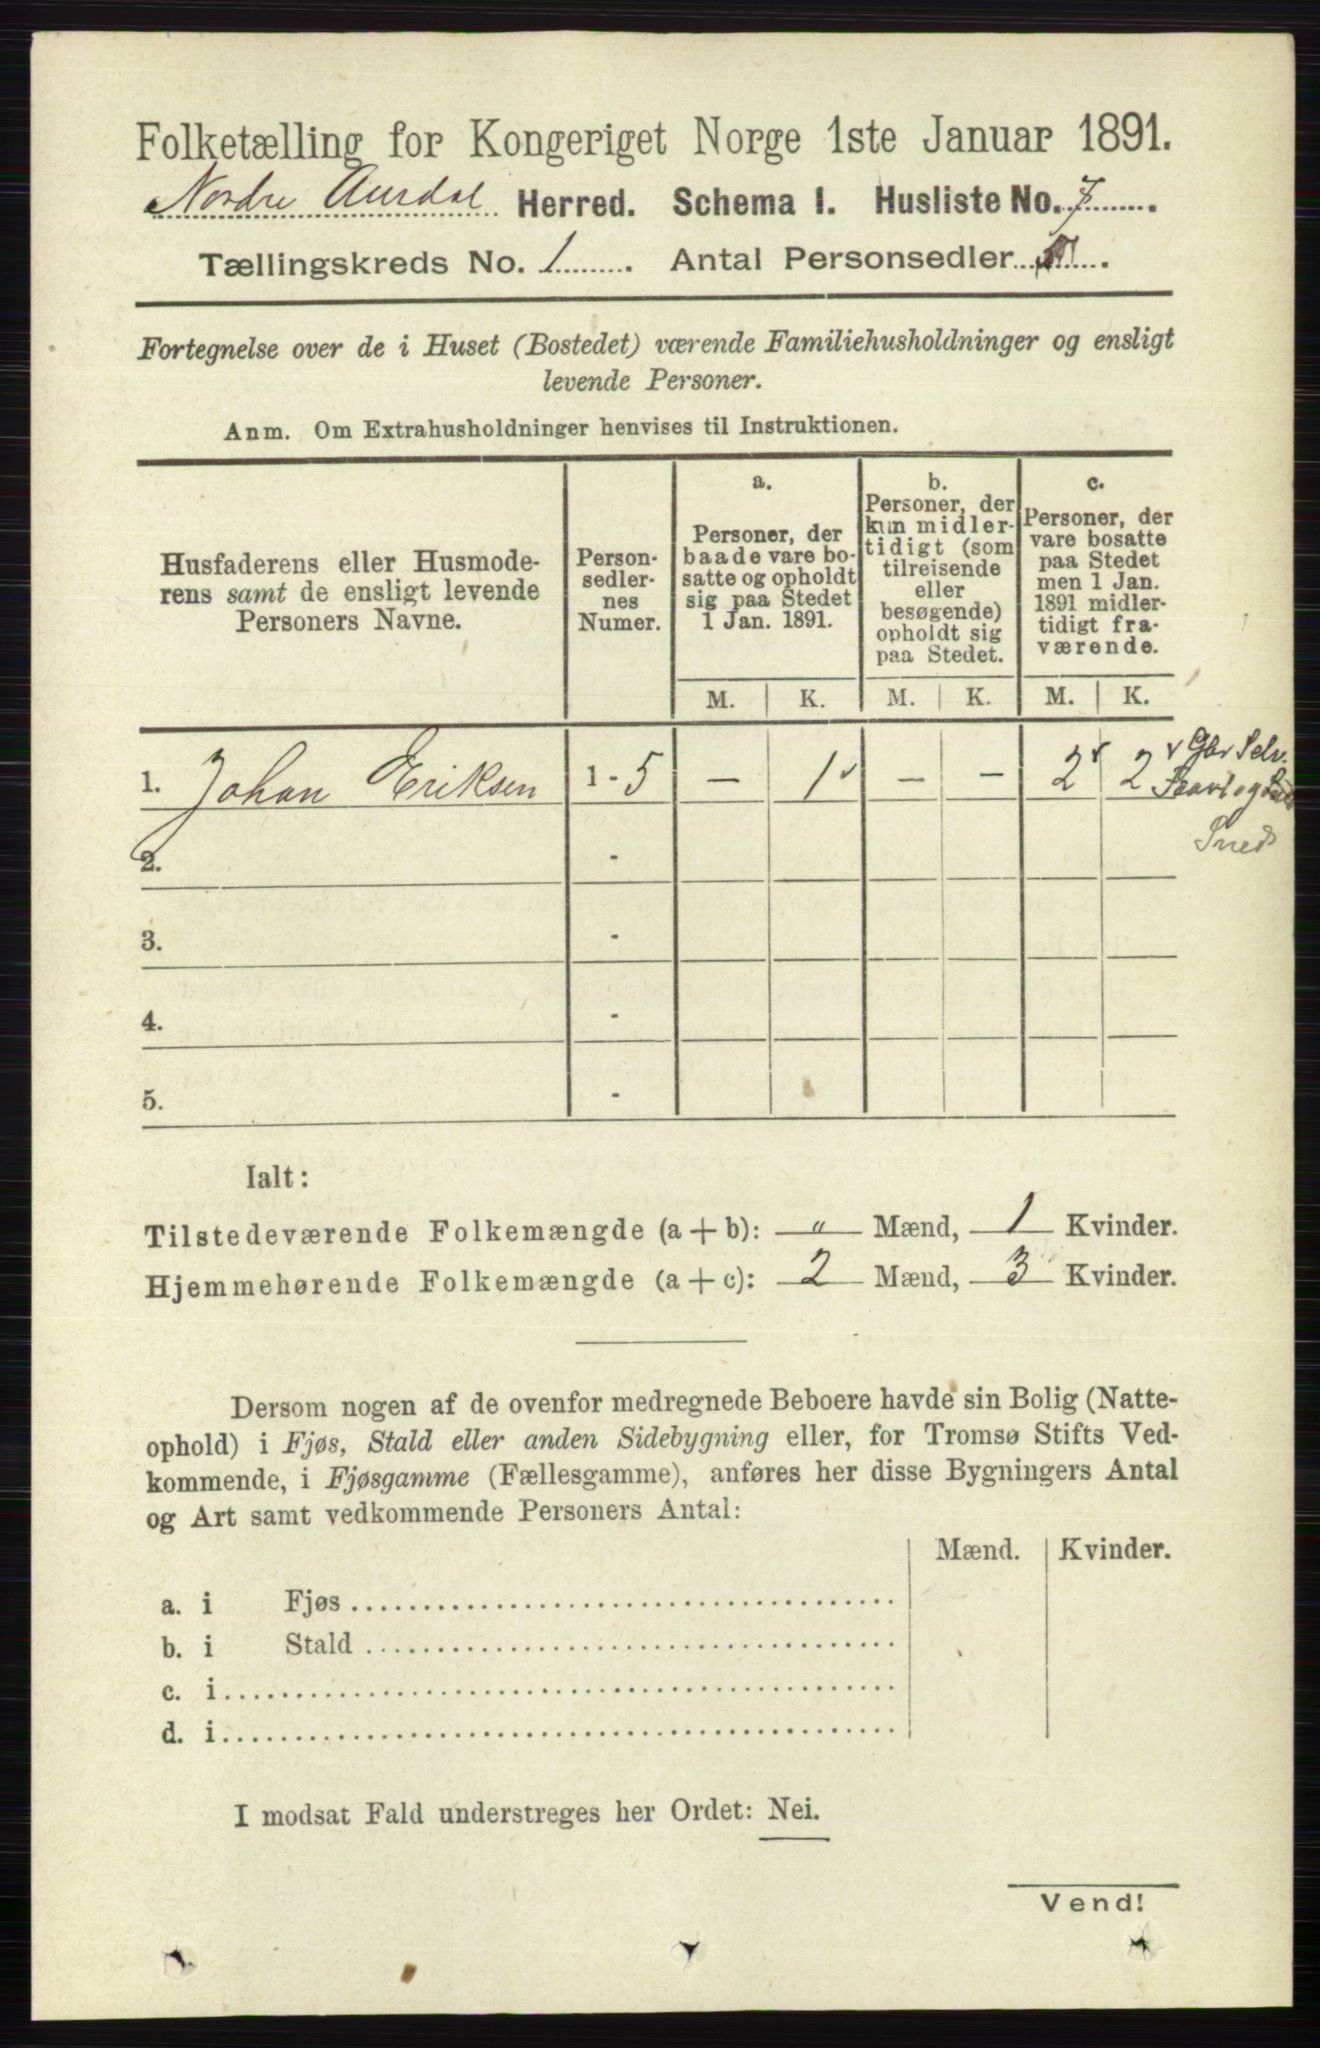 Folketælling for Kongeriget Norge 1ste Januar 1891.
Nordre Aurdal Herred. Schema I. Husliste No. 7
Tællingskreds No. 1. Antal Personsedler
Fortegnelse over de i Huset (Bostedet) værende Familiehusholdninger og ensligt
levende Personer.
Anm. Om Extrahusholdninger henvises til Instruktionen.
Husfaderens eller Husmode-
rens samt de ensligt levende
Personers Navne.
Person-
sedler-
nes
Numer.
a.
Personer, der
baade vare bo-
satte og opholdt
sig paa Stedet
1 Jan. 1891.
b.
Personer, der
kun midler-
tidigt (som
tilreisende
eller
besøgende)
opholdt sig
paa Stedet.
c.
Personer, der
vare bosatte
paa Stedet
men 1 Jan.
1891 midler-
tidigt fra-
værende.
M. K. M. K. M. K.
1. Johan Eriksen 1 - 5 — 1 — — 2 2
Gbr Selv.
2. -
3. -
4. -
5. -
Ialt:
Tilstedeværende Folkemængde (a + b): „ Mænd, 1 Kvinder.
Hjemmehørende Folkemængde (a + c): 2 Mænd, 3 Kvinder.
Dersom nogen af de ovenfor medregnede Beboere havde sin Bolig (Natte-
ophold) i Fjøs, Stald eller anden Sidebygning eller, for Tromsø Stifts Ved-
kommende, i Fjøsgamme (Fællesgamme), anføres her disse Bygningers Antal
og Art samt vedkommende Personers Antal:
Mænd. Kvinder.
a. i Fjøs
b. i Stald
c. i
d. i
I modsat Fald understreges her Ordet: Nei.
Vend!